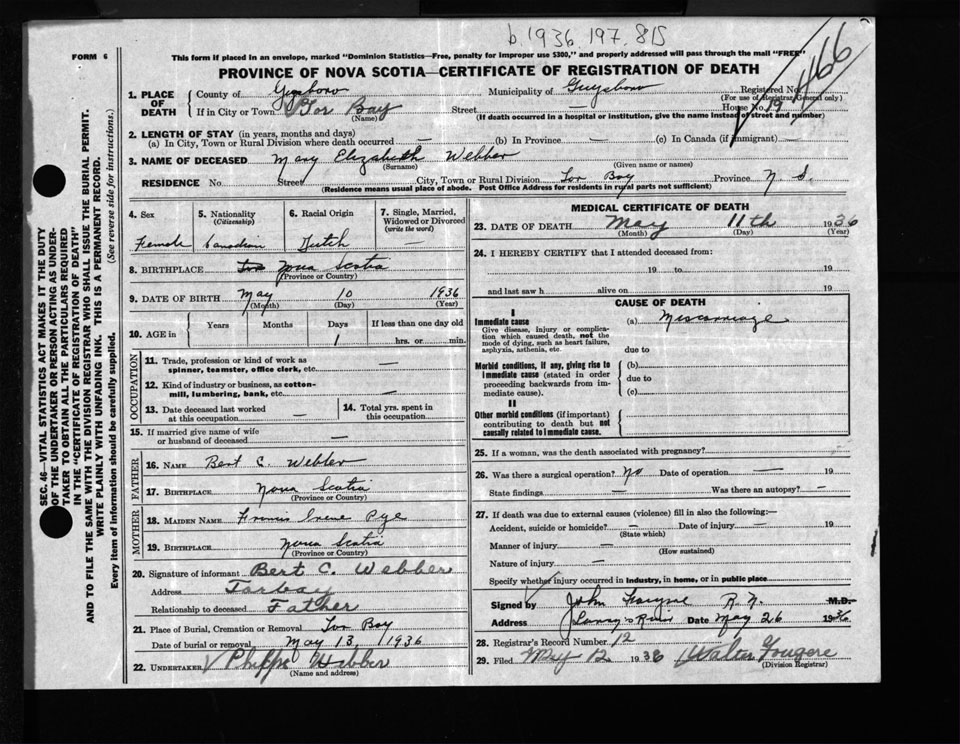 b. 1936 197. 815
466
FORM 6
This form if placed in an envelope, marked "Dominion Statistics—Free, penalty for improper use $300," and properly addressed will pass through the mail "FREE"
PROVINCE OF NOVA SCOTIA—CERTIFICATE OF REGISTRATION OF DEATH
1. PLACE OF DEATH
County of Guysboro Municipality of Guysboro Registered No.
(For use of Registrar General only)
If in City or Town Tor Bay Street — House No. 19
(Name) (If death occurred in a hospital or institution, give the name instead of street and number)
2. LENGTH OF STAY (in years, months and days)
(a) In City, Town or Rural Division where death occurred — (b) In Province — (c) In Canada (if immigrant) —
3. NAME OF DECEASED Mary Elizabeth Webber
(Surname) (Given name or names)
RESIDENCE No. Street City, Town or Rural Division Tor Bay Province N. S.
(Residence means usual place of abode. Post Office Address for residents in rural parts not sufficient)
4. Sex
Female
5. Nationality
(Citizenship)
Canadian
6. Racial Origin
Dutch
7. Single, Married, Widowed or Divorced
(write the word)
—
8. BIRTHPLACE Nova Scotia
(Province or Country)
9. DATE OF BIRTH May 10 1936
(Month) (Day) (Year)
10. AGE in
Years Months Days If less than one day old
1 hrs. or min.
OCCUPATION
11. Trade, profession or kind of work as spinner, teamster, office clerk, etc. —
12. Kind of industry or business, as cotton-mill, lumbering, bank, etc. —
13. Date deceased last worked at this occupation —
14. Total yrs. spent in this occupation
15. If married give name of wife or husband of deceased —
FATHER
16. NAME Bert C. Webber
17. BIRTHPLACE Nova Scotia
(Province or Country)
MOTHER
18. MAIDEN NAME Francis Irene Pye
19. BIRTHPLACE Nova Scotia
(Province or Country)
20. Signature of informant Bert C. Webber
Address Torbay
Relationship to deceased Father
21. Place of Burial, Cremation or Removal Tor Bay
Date of burial or removal May 13, 1936
22. UNDERTAKER Webber
(Name and address)
MEDICAL CERTIFICATE OF DEATH
23. DATE OF DEATH May 11th 1936
(Month) (Day) (Year)
24. I HEREBY CERTIFY that I attended deceased from:
19 to 19
and last saw h alive on 19
CAUSE OF DEATH
I
Immediate cause
Give disease, injury or complication which caused death, not the mode of dying, such as heart failure, asphyxia, asthenia, etc.
(a) Miscarriage
due to
Morbid conditions, if any, giving rise to immediate cause (stated in order proceeding backwards from immediate cause).
(b)
due to
(c)
II
Other morbid conditions (if important) contributing to death but not causally related to immediate cause.
25. If a woman, was the death associated with pregnancy?
26. Was there a surgical operation? No Date of operation — 19
State findings — Was there an autopsy? —
27. If death was due to external causes (violence) fill in also the following:—
Accident, suicide or homicide? — Date of injury — 19
(State which)
Manner of injury —
(How sustained)
Nature of injury —
Specify whether injury occurred in industry, in home, or in public place
Signed by John R. N. M.D.
Address Larry's River Date May 26 1936
28. Registrar's Record Number 12
29. Filed May 12 1936 Walter Fougere
(Division Registrar)
SEC. 46—VITAL STATISTICS ACT MAKES IT THE DUTY
OF THE UNDERTAKER OR PERSON ACTING AS UNDER-
TAKER TO OBTAIN ALL THE PARTICULARS REQUIRED
IN THE "CERTIFICATE OF REGISTRATION OF DEATH"
AND TO FILE THE SAME WITH THE DIVISION REGISTRAR WHO SHALL ISSUE THE BURIAL PERMIT.
WRITE PLAINLY WITH UNFADING INK. THIS IS A PERMANENT RECORD.
Every item of information should be carefully supplied. (See reverse side for instructions.)